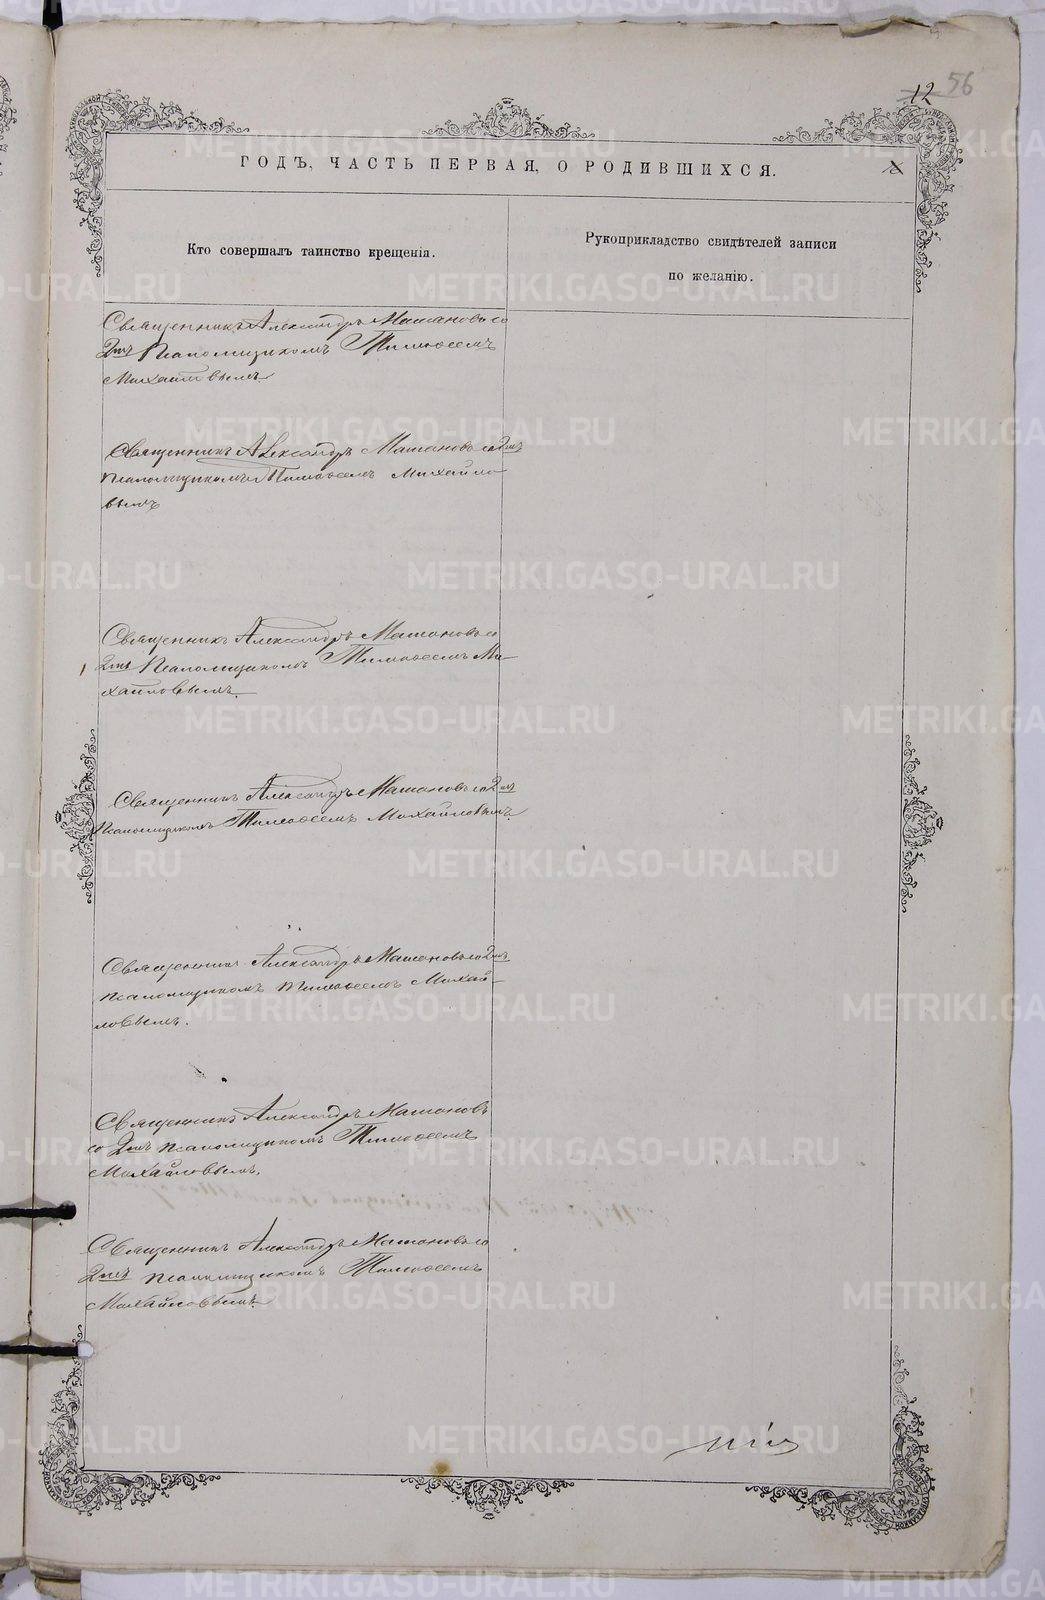 12 56
ГОДЪ, ЧАСТЬ ПЕРВАЯ, О РОДИВШИХСЯ.
Кто совершалъ таинство крещенія.
Рукоприкладство свидѣтелей записи
по желанію.
Священникъ Александръ Машановъ со
2мъ Псаломщикомъ Тимоѳеемъ
Михайловымъ
Священникъ Александръ Машановъ со 2мъ
псаломщикомъ Тимоѳеемъ Михайло-
вымъ
Священникъ Александръ Машановъ со
2мъ Псаломщикомъ Тимоѳеемъ Ми-
хайловымъ.
Священникъ Александръ Машановъ со 2мъ
Псаломщикомъ Тимоѳеемъ Михайловымъ
Священникъ Александръ Машановъ со 2мъ
псаломщикомъ Тимоѳеемъ Михай-
ловымъ.
Священникъ Александръ Машановъ
со 2мъ псаломщикомъ Тимоѳеемъ
Михайловымъ.
Священникъ Александръ Машановъ со
2мъ псаломщикомъ Тимоѳеемъ
Михайловымъ
METRIKI.GASO-URAL.RU